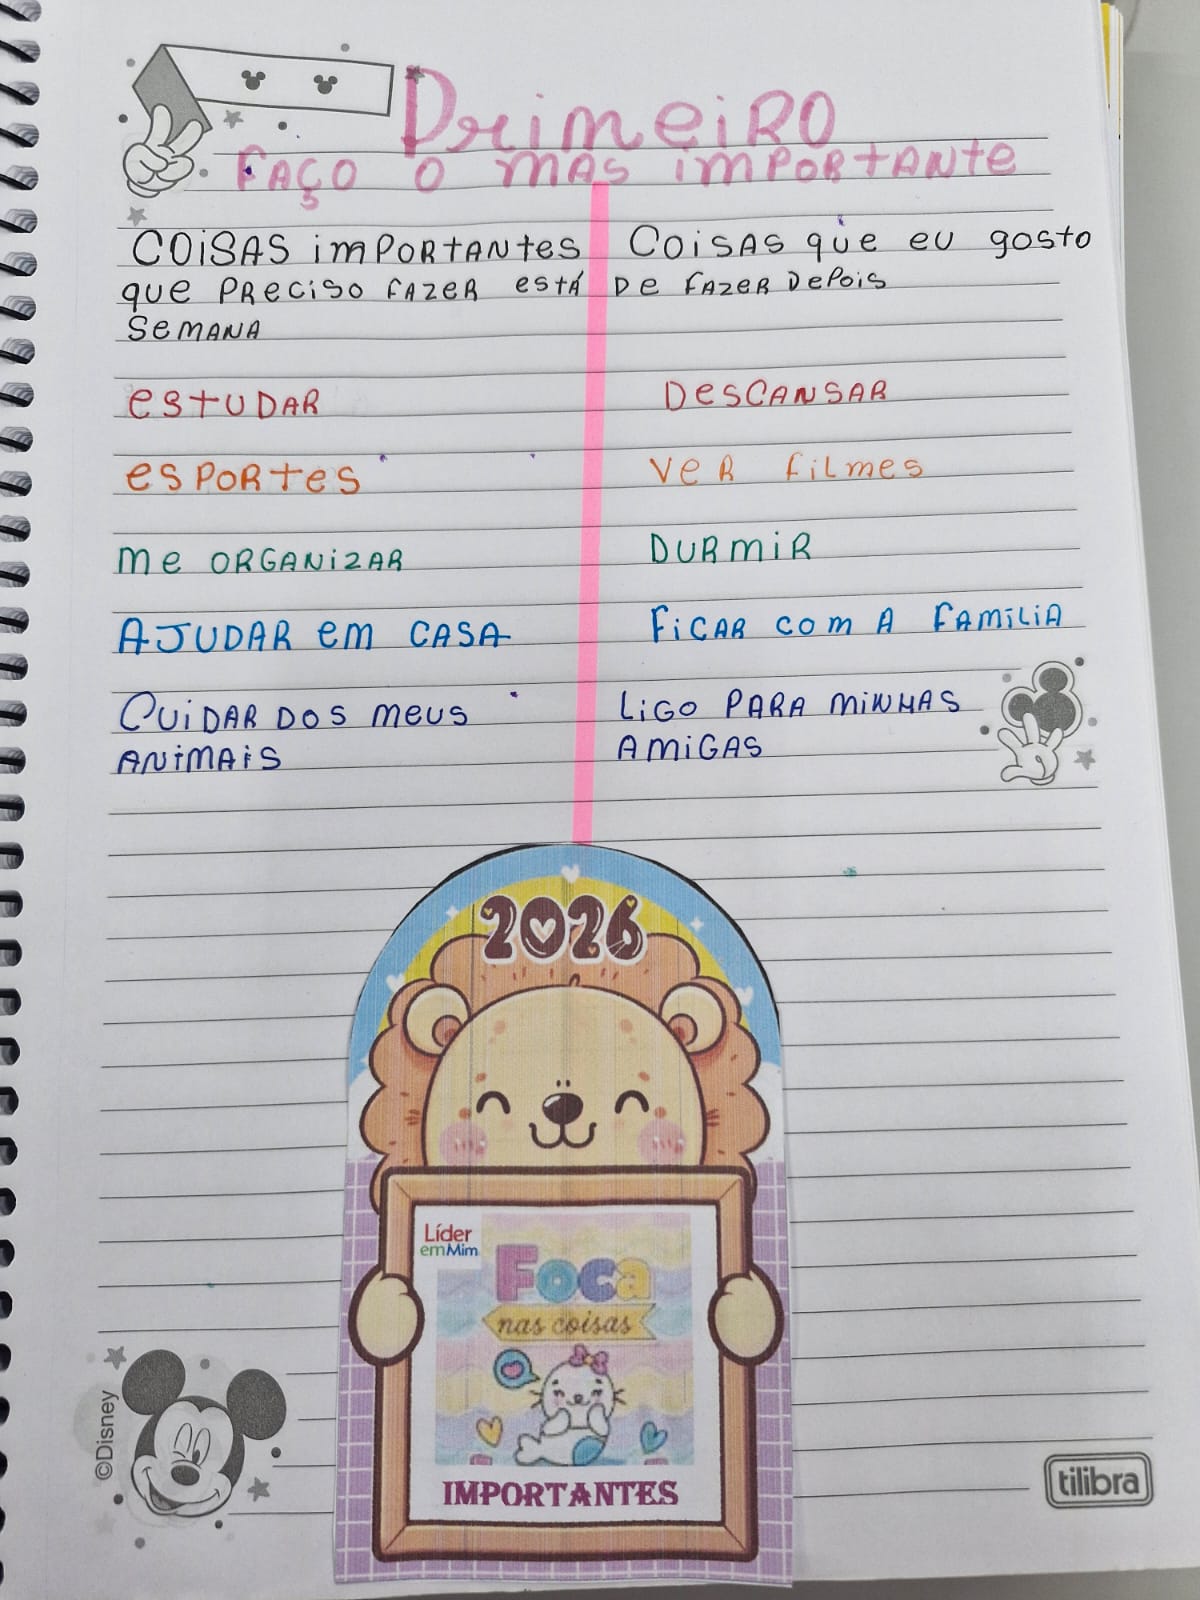 Primeiro
Faço o mas importante
Coisas importantes
que preciso fazer está
semana
estudar
esportes
me organizar
Ajudar em casa
Cuidar dos meus
animais
Coisas que eu gosto
de fazer depois
Descansar
ver filmes
Durmir
Ficar com a família
Ligo para minhas
amigas
2026
Líder
emMim
Foca
nas coisas
IMPORTANTES
©Disney
tilibra